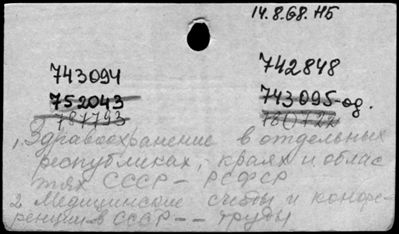 14.8.68. НБ
743094 742848
752043 743095-од.
787793 780722
1. Здравоохранение в отдельных
республиках, краях и облас
тях СССР - РСФСР
2 Медицинские съезды и конфе-
ренции в СССР -- труды